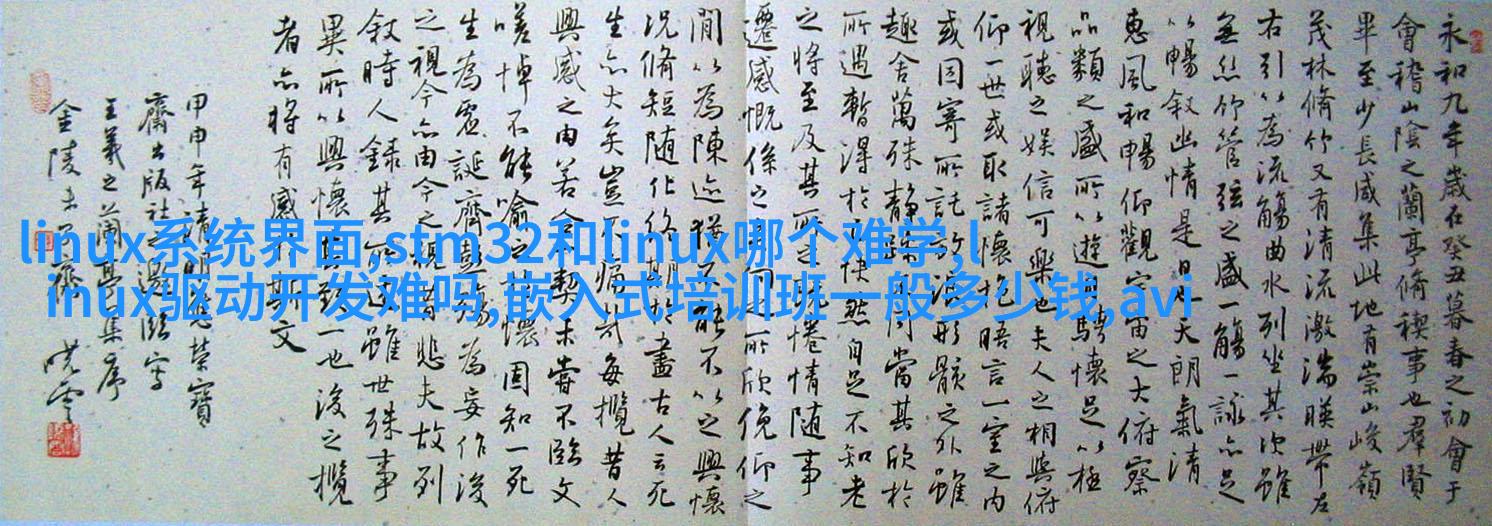 linux系统界面,stm32和linux哪个难学,l
inux驱动开发难吗,嵌入式培训班一般多少钱,avi
永和九年歲在癸丑暮春之初會于
會稽山陰之蘭亭脩禊事也群賢
畢至少長咸集此地有崇山峻嶺
茂林脩竹又有清流激湍暎帶左
右引以為流觴曲水列坐其次雖
無絲竹管弦之盛一觴一詠亦足
以暢敘幽情是日也天朗氣清
惠風和暢仰觀宇宙之大俯察
品類之盛所以遊目騁懷足以極
視聽之娱信可樂也夫人之相與俯
仰一世或取諸懷抱晤言一室之内
或因寄所託放浪形骸之外雖
趣舍萬殊静躁不同當其欣於
所遇暫得於己快然自足不知老
之將至及其所之既惓情随事
遷感慨係之矣向之所欣俛仰之
間以為陳迹猶不能不以之興懷
況脩短随化終期於盡古人云死
生亦大矣豈不痛哉每攬昔人
興感之由若合一契未嘗不臨文
嗟悼不能喻之於懷固知一死
生為虚誕齊彭殤為妄作後
之視今亦由今之視昔悲夫故列
敘時人錄其所述雖世殊事
異所以興懷其致一也後之攬
者亦將有感於斯文
甲申年清明應榮寶
齋出版社之邀寫
王羲之蘭亭集序
金陵 齋 曉雲